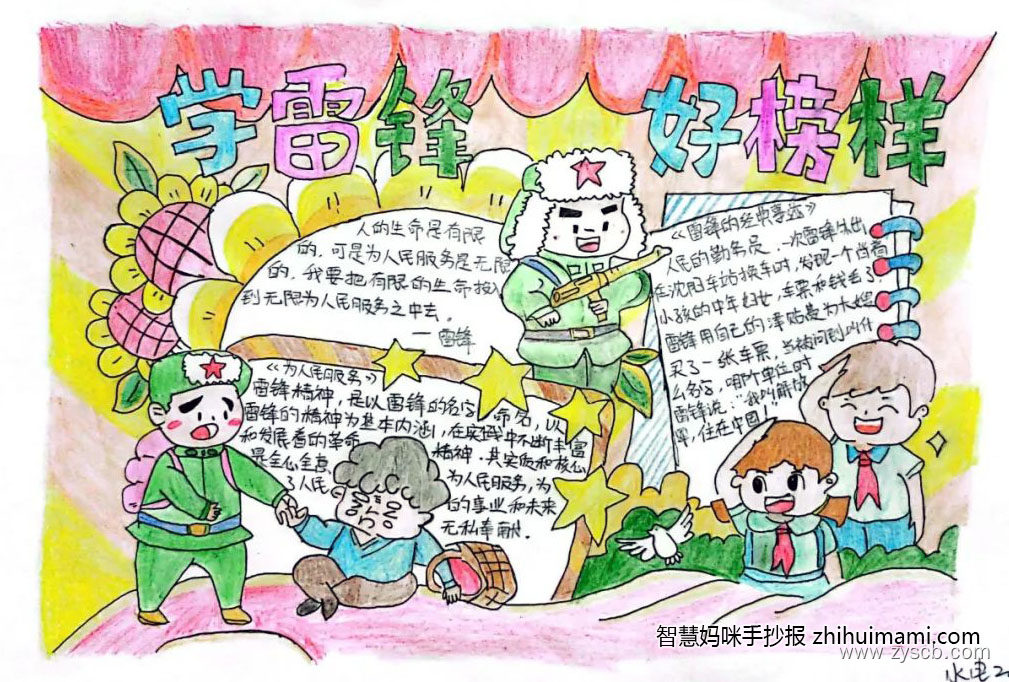 学雷锋 好榜样
人的生命是有限
的，可是为人民服务是无限
的，我要把有限的生命投入
到无限为人民服务之中去。
——雷锋
《雷锋的经典事迹》
人民的勤务员，一次雷锋外出
在沈阳车站换车时，发现一个背着
小孩的中年妇女，车票和钱丢了
雷锋用自己的津贴费为大嫂
买了一张车票，当被问到叫什
么名字，哪个单位时
雷锋说："我叫解放
军，住在中国！"
《为人民服务》
雷锋精神，是以雷锋的名字命名，以
雷锋的精神为基本内涵，在实践中不断丰富
和发展着的革命精神，其实质和核心
是全心全意为人民服务，为
了人民的事业和未来
无私奉献。
智慧妈咪手抄报 zhihuimami.com
www.zyscb.com